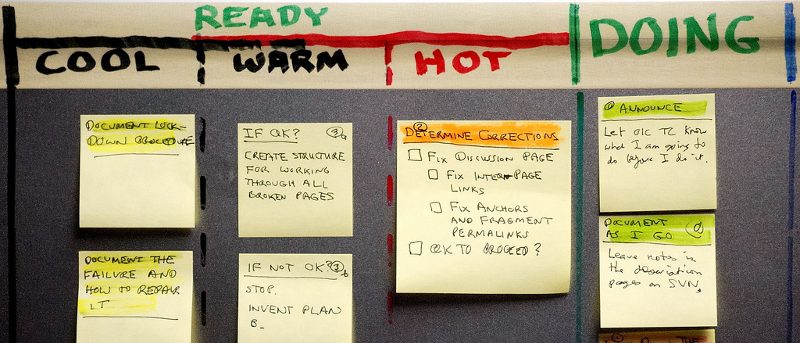 READY
COOL
WARM
HOT
DOING
DOCUMENT LOCK-
DOWN PROCEDURE
DOCUMENT THE
FAILURE AND
HOW TO REPAIR
IT
IF OK? 3a
CREATE STRUCTURE
FOR WORKING
THROUGH ALL
BROKEN PAGES
IF NOT OK? 3b
STOP.
INVENT PLAN
B.
2
DETERMINE CORRECTIONS
FIX DISCUSSION PAGE
FIX INTER-PAGE
LINKS
FIX ANCHORS
AND FRAGMENT
PERMALINKS
OK TO PROCEED?
ANNOUNCE
Let OIC TC know
what I am going to
do before I do it.
DOCUMENT
AS I GO
Leave notes in
the description
pages on SVN.
THE